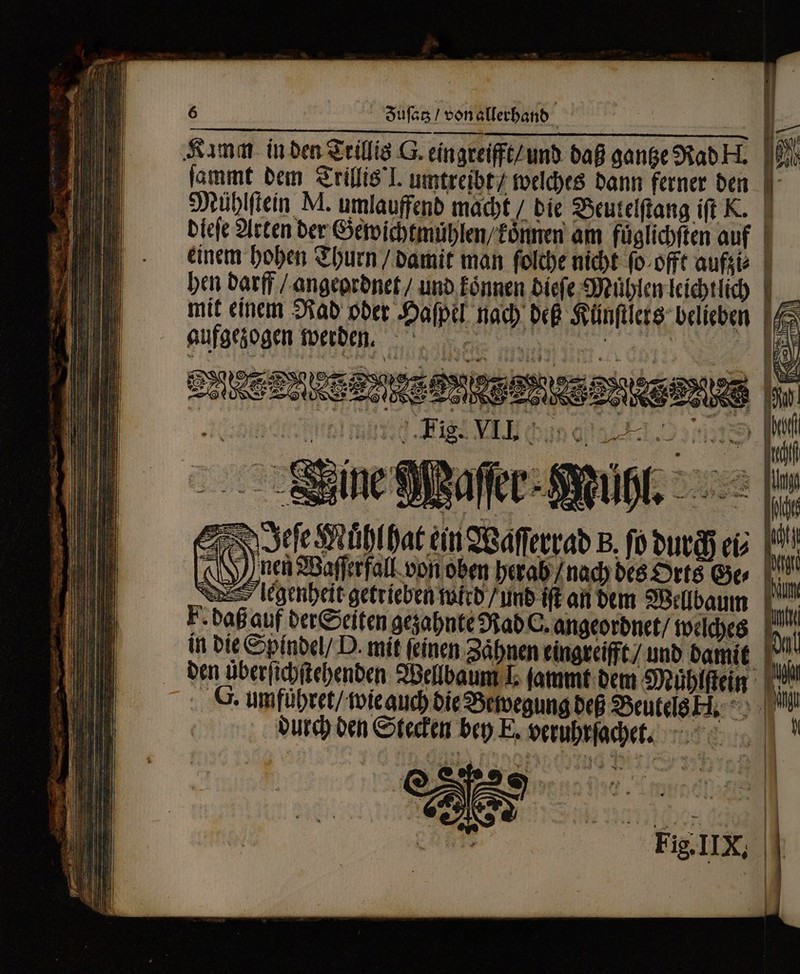 6 Zuſatz / von allerhand
Kamm in den Trillis G. eingreifft / und daß gantze Rad H.
ſammt dem Trillis I. umtreibt / welches dann ferner den
Mühlſtein M. umlauffend macht / die Beutelſtang iſt K.
dieſe Arten der Gewichtmühlen / können am füglichſten auf
einem hohen Thurn / damit man ſolche nicht ſo offt aufzi⸗
hen darff / angeordnet / und können dieſe Mühlen leichtlich
mit einem Rad oder Haſpel nach deß Künſtlers belieben
aufgezogen werden.
Fig. VII.
Eine Waſſer-Mühl.
DIeſe Mühl hat ein Waſſerrad B. ſo durch ei⸗
nen Waſſerfall von oben herab / nach des Orts Ge⸗
legenheit getrieben wird / und iſt an dem Wellbaum
F. daß auf der Seiten gezahnte Rad C. angeordnet / welches
in die Spindel / D. mit ſeinen Zähnen eingreifft / und damit
den überſichſtehenden Wellbaum I. ſammt dem Mühlſtein
G. umführet / wie auch die Bewegung deß Beutels H.
durch den Stecken bey E. veruhrſachet.
Fig. IIX,